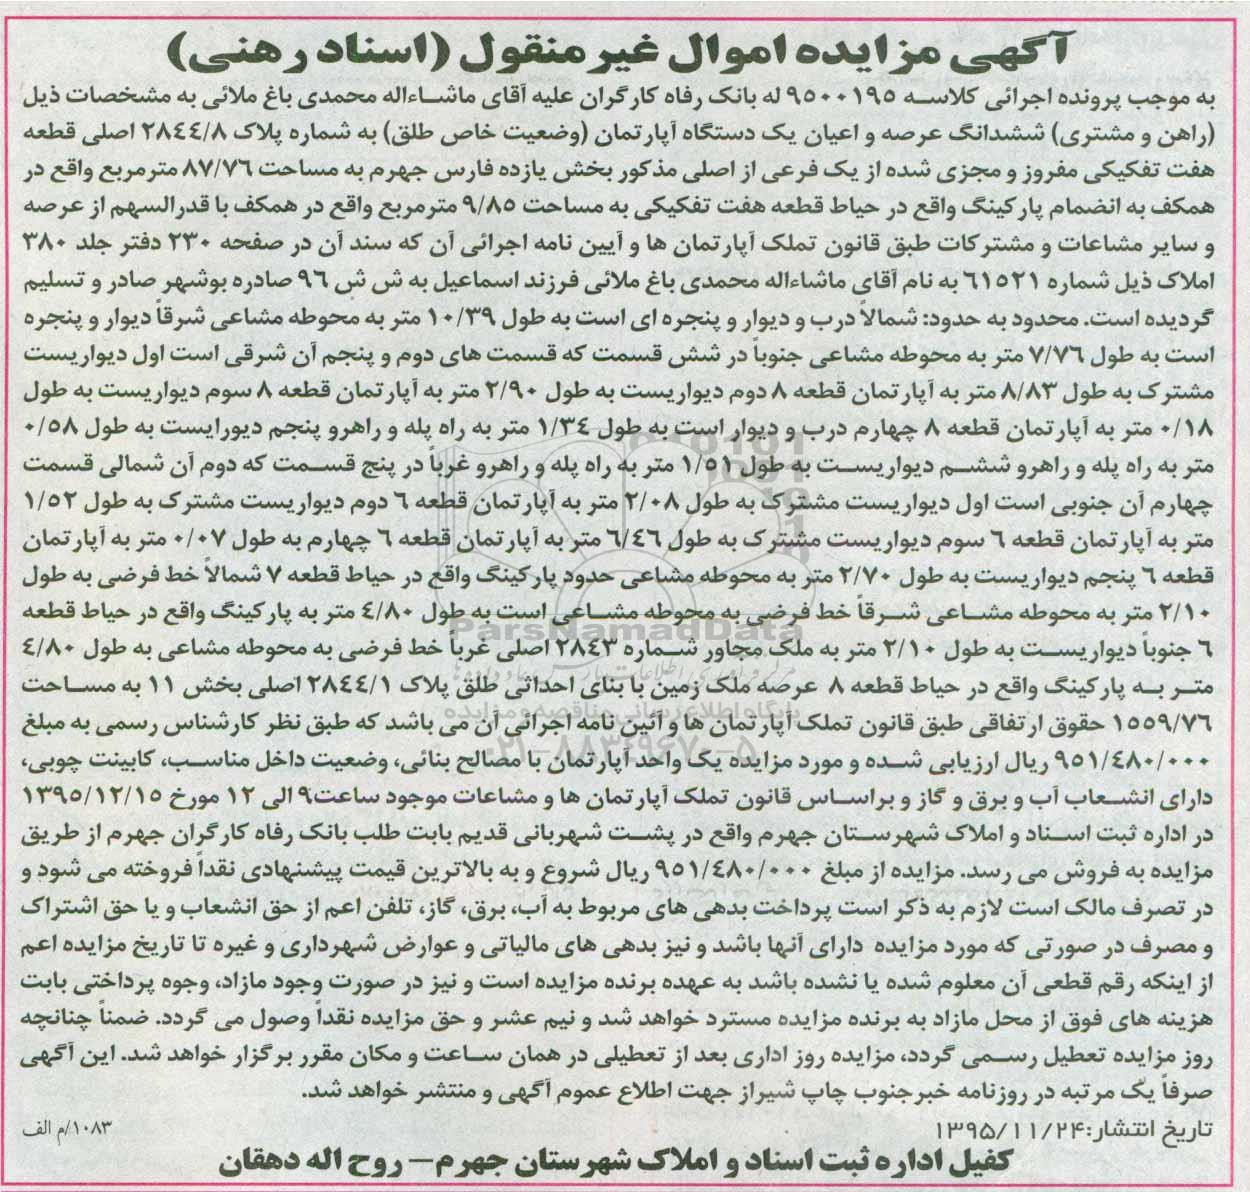 آگهی مزایده اموال غیر منقول (اسناد رهنی)
به موجب پرونده اجرائی کلاسه ۹۵۰۰۱۹۵ له بانک رفاه کارگران علیه آقای ماشاءاله محمدی باغ ملائی به مشخصات ذیل
(راهن و مشتری) ششدانگ عرصه و اعیان یک دستگاه آپارتمان (وضعیت خاص طلق) به شماره پلاک ۲۸۴۴/۸ اصلی قطعه
هفت تفکیکی مفروز و مجزی شده از یک فرعی از اصلی مذکور بخش یازده فارس جهرم به مساحت ۸۷/۷۶ مترمربع واقع در
همکف به انضمام پارکینگ واقع در حیاط قطعه هفت تفکیکی به مساحت ۹/۸۵ مترمربع واقع در همکف با قدرالسهم از عرصه
و سایر مشاعات و مشترکات طبق قانون تملک آپارتمان ها و آیین نامه اجرائی آن که سند آن در صفحه ۲۳۰ دفتر جلد ۳۸۰
املاک ذیل شماره ۶۱۵۲۱ به نام آقای ماشاءاله محمدی باغ ملائی فرزند اسماعیل به ش ش ۹۶ صادره بوشهر صادر و تسلیم
گردیده است. محدود به حدود: شمالاً درب و دیوار و پنجره ای است به طول ۱۰/۳۹ متر به محوطه مشاعی شرقاً دیوار و پنجره
است به طول ۷/۷۶ متر به محوطه مشاعی جنوباً در شش قسمت که قسمت های دوم و پنجم آن شرقی است اول دیواریست
مشترک به طول ۸/۸۳ متر به آپارتمان قطعه ۸ دوم دیواریست به طول ۲/۹۰ متر به آپارتمان قطعه ۸ سوم دیواریست به طول
۰/۱۸ متر به آپارتمان قطعه ۸ چهارم درب و دیوار است به طول ۱/۳۴ متر به راه پله و راهرو پنجم دیورایست به طول ۰/۵۸
متر به راه پله و راهرو ششم دیواریست به طول ۱/۵۱ متر به راه پله و راهرو غرباً در پنج قسمت که دوم آن شمالی قسمت
چهارم آن جنوبی است اول دیواریست مشترک به طول ۲/۰۸ متر به آپارتمان قطعه ۶ دوم دیواریست مشترک به طول ۱/۵۲
متر به آپارتمان قطعه ۶ سوم دیواریست مشترک به طول ۶/۴۶ متر به آپارتمان قطعه ۶ چهارم به طول ۰/۰۷ متر به آپارتمان
قطعه ۶ پنجم دیواریست به طول ۲/۷۰ متر به محوطه مشاعی حدود پارکینگ واقع در حیاط قطعه ۷ شمالاً خط فرضی به طول
۲/۱۰ متر به محوطه مشاعی شرقاً خط فرضی به محوطه مشاعی است به طول ۴/۸۰ متر به پارکینگ واقع در حیاط قطعه
۶ جنوباً دیواریست به طول ۲/۱۰ متر به ملک مجاور شماره ۲۸۴۳ اصلی غرباً خط فرضی به محوطه مشاعی به طول ۴/۸۰
متر به پارکینگ واقع در حیاط قطعه ۸ عرصه ملک زمین با بنای احداثی طلق پلاک ۲۸۴۴/۱ اصلی بخش ۱۱ به مساحت
۱۵۵۹/۷۶ حقوق ارتفاقی طبق قانون تملک آپارتمان ها و آئین نامه اجرائی آن می باشد که طبق نظر کارشناس رسمی به مبلغ
۹۵۱/۴۸۰/۰۰۰ ریال ارزیابی شده و مورد مزایده یک واحد آپارتمان با مصالح بنائی، وضعیت داخل مناسب، کابینت چوبی،
دارای انشعاب آب و برق و گاز و براساس قانون تملک آپارتمان ها و مشاعات موجود ساعت۹ الی ۱۲ مورخ ۱۳۹۵/۱۲/۱۵
در اداره ثبت اسناد و املاک شهرستان جهرم واقع در پشت شهربانی قدیم بابت طلب بانک رفاه کارگران جهرم از طریق
مزایده به فروش می رسد. مزایده از مبلغ ۹۵۱/۴۸۰/۰۰۰ ریال شروع و به بالاترین قیمت پیشنهادی نقداً فروخته می شود و
در تصرف مالک است لازم به ذکر است پرداخت بدهی های مربوط به آب، برق، گاز، تلفن اعم از حق انشعاب و یا حق اشتراک
و مصرف در صورتی که مورد مزایده دارای آنها باشد و نیز بدهی های مالیاتی و عوارض شهرداری و غیره تا تاریخ مزایده اعم
از اینکه رقم قطعی آن معلوم شده یا نشده باشد به عهده برنده مزایده است و نیز در صورت وجود مازاد، وجوه پرداختی بابت
هزینه های فوق از محل مازاد به برنده مزایده مسترد خواهد شد و نیم عشر و حق مزایده نقداً وصول می گردد. ضمناً چنانچه
روز مزایده تعطیل رسمی گردد، مزایده روز اداری بعد از تعطیلی در همان ساعت و مکان مقرر برگزار خواهد شد. این آگهی
صرفاً یک مرتبه در روزنامه خبرجنوب چاپ شیراز جهت اطلاع عموم آگهی و منتشر خواهد شد.
تاریخ انتشار:۱۳۹۵/۱۱/۲۴
۱۰۸۳/م الف
کفیل اداره ثبت اسناد و املاک شهرستان جهرم– روح اله دهقان
ParsNamadData
پایگاه اطلاع رسانی مناقصه و مزایده
۰۲۱-۸۸۳۴۹۶۷۰-۵